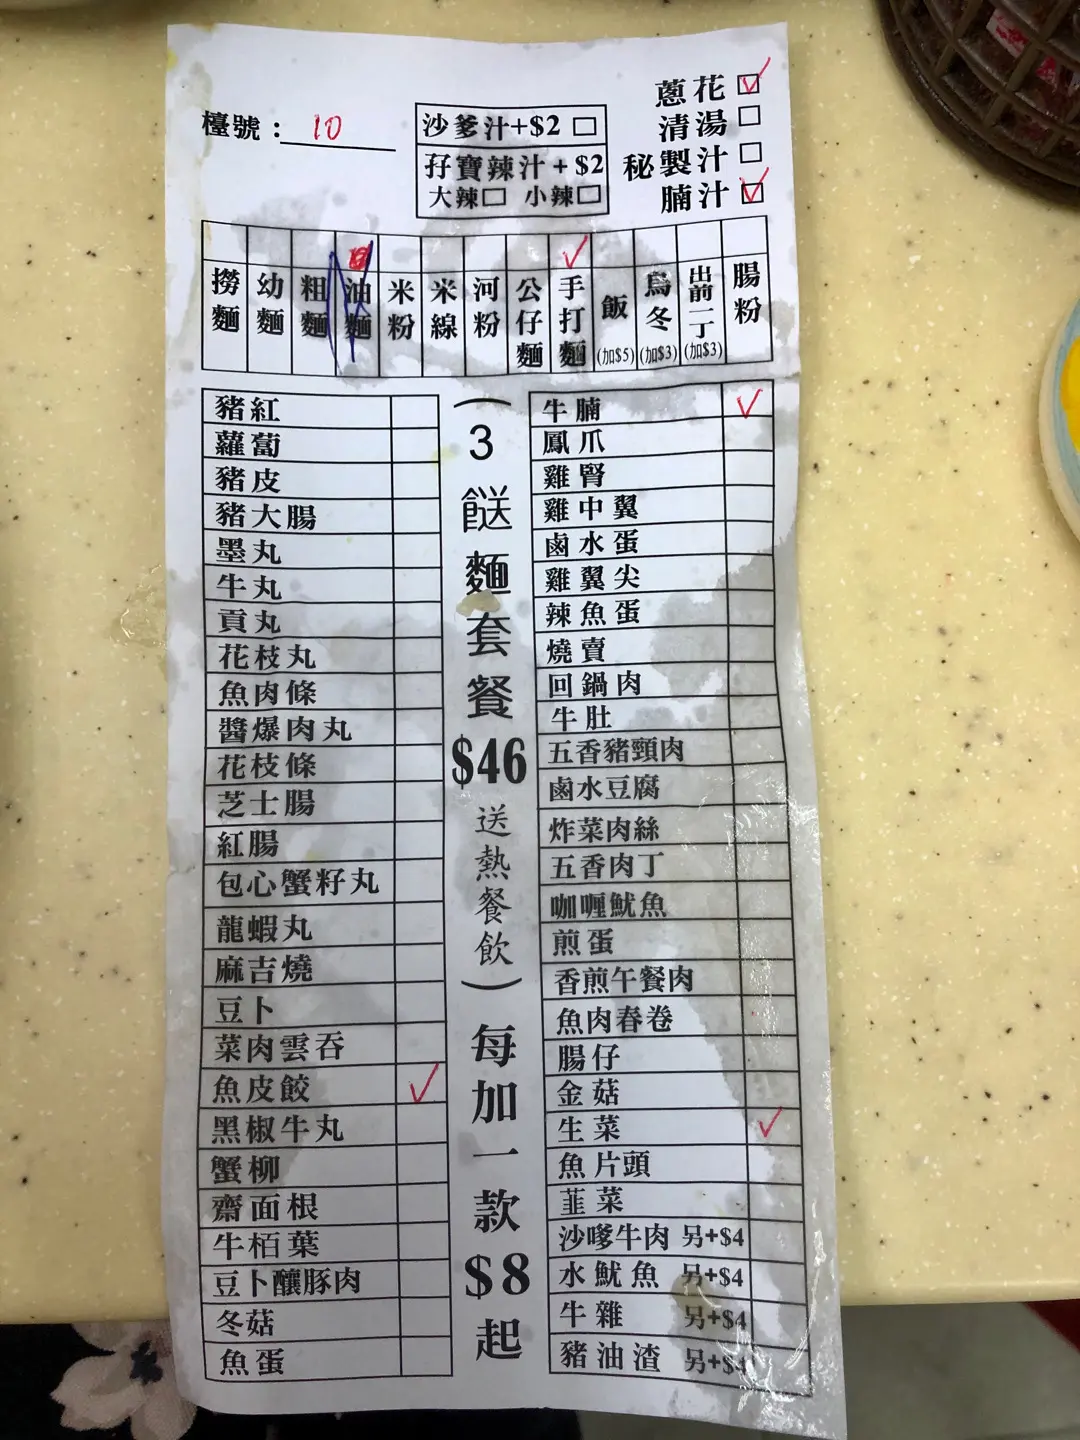 檯號：10
沙爹汁+$2 □
孖寶辣汁+$2
大辣□ 小辣□
蔥花 ☑
清湯 □
秘製汁 □
腩汁 ☑
撈麵
幼麵
粗麵
油麵
米粉
米線
河粉
公仔麵
手打麵 ✓
飯(加$5)
烏冬(加$3)
出前一丁(加$3)
腸粉
豬紅
蘿蔔
豬皮
豬大腸
墨丸
牛丸
貢丸
花枝丸
魚肉條
醬爆肉丸
花枝條
芝士腸
紅腸
包心蟹籽丸
龍蝦丸
麻吉燒
豆卜
菜肉雲吞
魚皮餃 ✓
黑椒牛丸
蟹柳
齋面根
牛栢葉
豆卜釀豚肉
冬菇
魚蛋
（3餸麵套餐$46送熱餐飲）每加一款$8起
牛腩 ✓
鳳爪
雞腎
雞中翼
鹵水蛋
雞翼尖
辣魚蛋
燒賣
回鍋肉
牛肚
五香豬頸肉
鹵水豆腐
炸菜肉絲
五香肉丁
咖喱魷魚
煎蛋
香煎午餐肉
魚肉春卷
腸仔
金菇
生菜 ✓
魚片頭
韮菜
沙嗲牛肉 另+$4
水魷魚 另+$4
牛雜 另+$4
豬油渣 另+$4